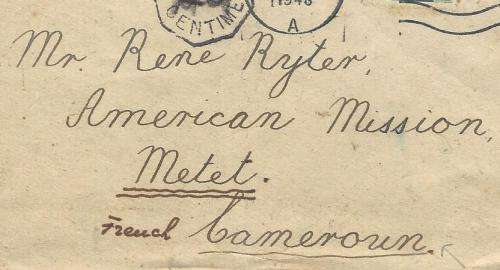 CENTIME
1948
A
Mr. Rene Ryter,
American Mission,
Metet.
French Cameroun.